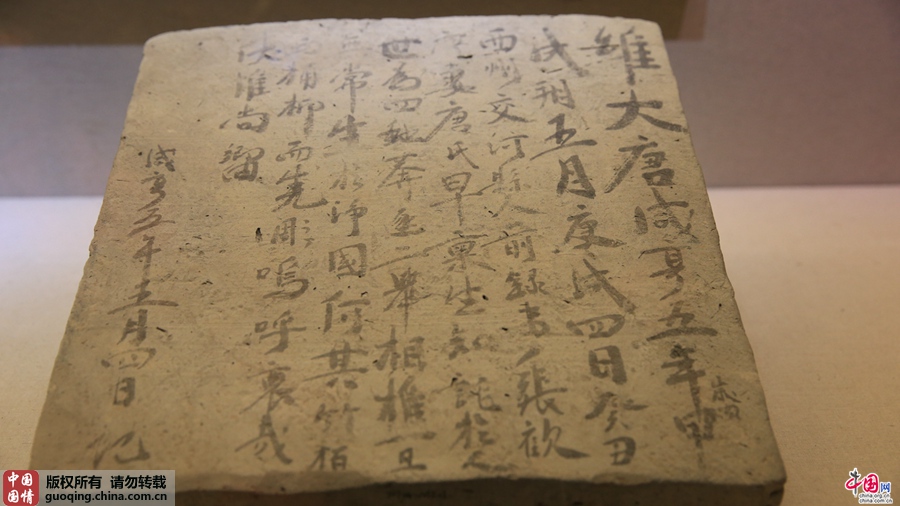 維大唐咸亨五年甲戌
歲朔五月庚戌四日癸丑
西州交河縣人前録事張歡
妻唐氏早稟生知託於人
世為四虵奔逐二鼠相摧一旦
無常生於淨國何其竹柏
蒲柳而先彫嗚呼哀哉
伏惟尚饗
咸亨五年五月四日記
中国国情
版权所有 请勿转载
guoqing.china.com.cn
中国网
china.org.cn
china.com.cn